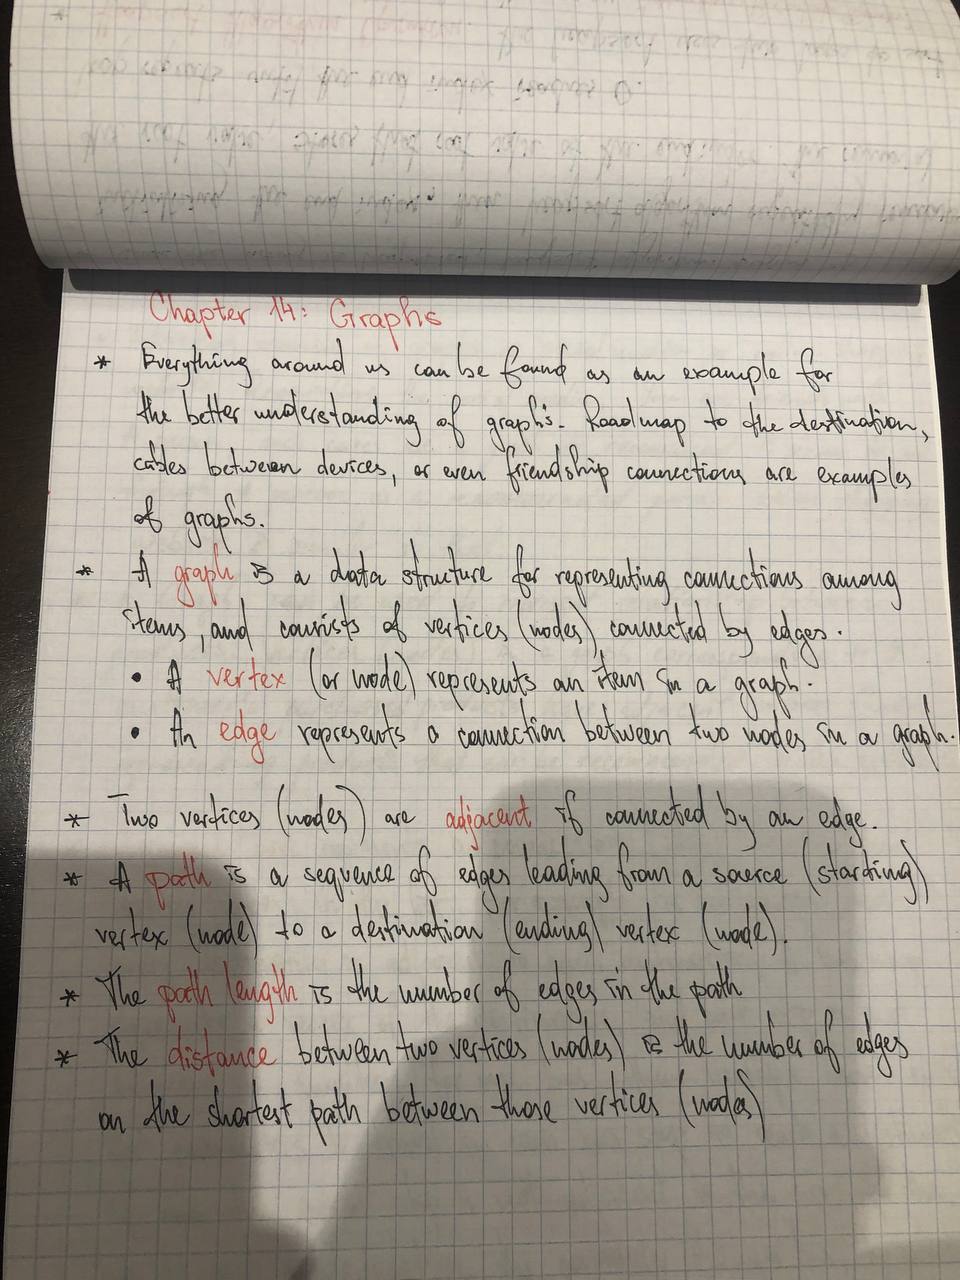 Chapter 14: Graphs
* Everything around us can be found as an example for
the better understanding of graphs. Roadmap to the destination,
cables between devices, or even friendship connections are examples
of graphs.
* A graph is a data structure for representing connections among
items, and consists of vertices (nodes) connected by edges.
• A vertex (or node) represents an item in a graph.
• An edge represents a connection between two nodes in a graph.
* Two vertices (nodes) are adjacent if connected by an edge.
* A path is a sequence of edges leading from a source (starting)
vertex (node) to a destination (ending) vertex (node).
* The path length is the number of edges in the path
* The distance between two vertices (nodes) is the number of edges
on the shortest path between those vertices (nodes)